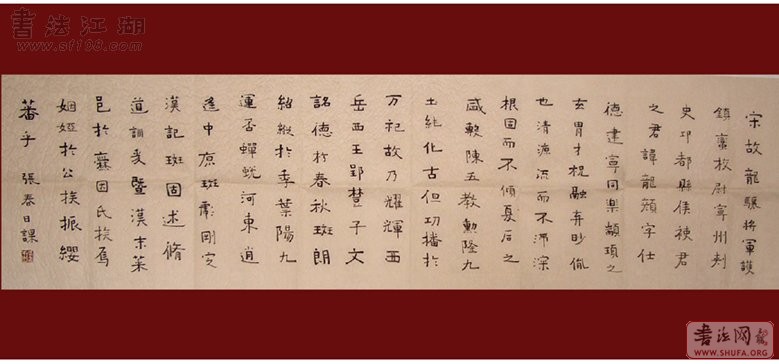 書法江湖
www.sf108.com
宋故龍驤將軍護
鎮蠻校尉寧州刺
史邛都縣侯使君
之君諱龍顏字仕
德建寧同樂顓頊之
玄胄才祝融弃眇胤
也清源流而不滞深
根固而不傾夏后之
盛敷陳五教勳隆九
土純化古但功播於
万祀故乃耀輝西
岳西王郢楚子文
詺德於春秋斑朗
紹縱於季葉陽九
運否蟬蛻河東逍
遙中原斑彪刪定
漢記斑固述脩
道訓爰暨漢末菜
邑於爨因氏族焉
姻婭於公族振纓
蕃乎 張春日課
书法网
WWW.SHUFA.ORG